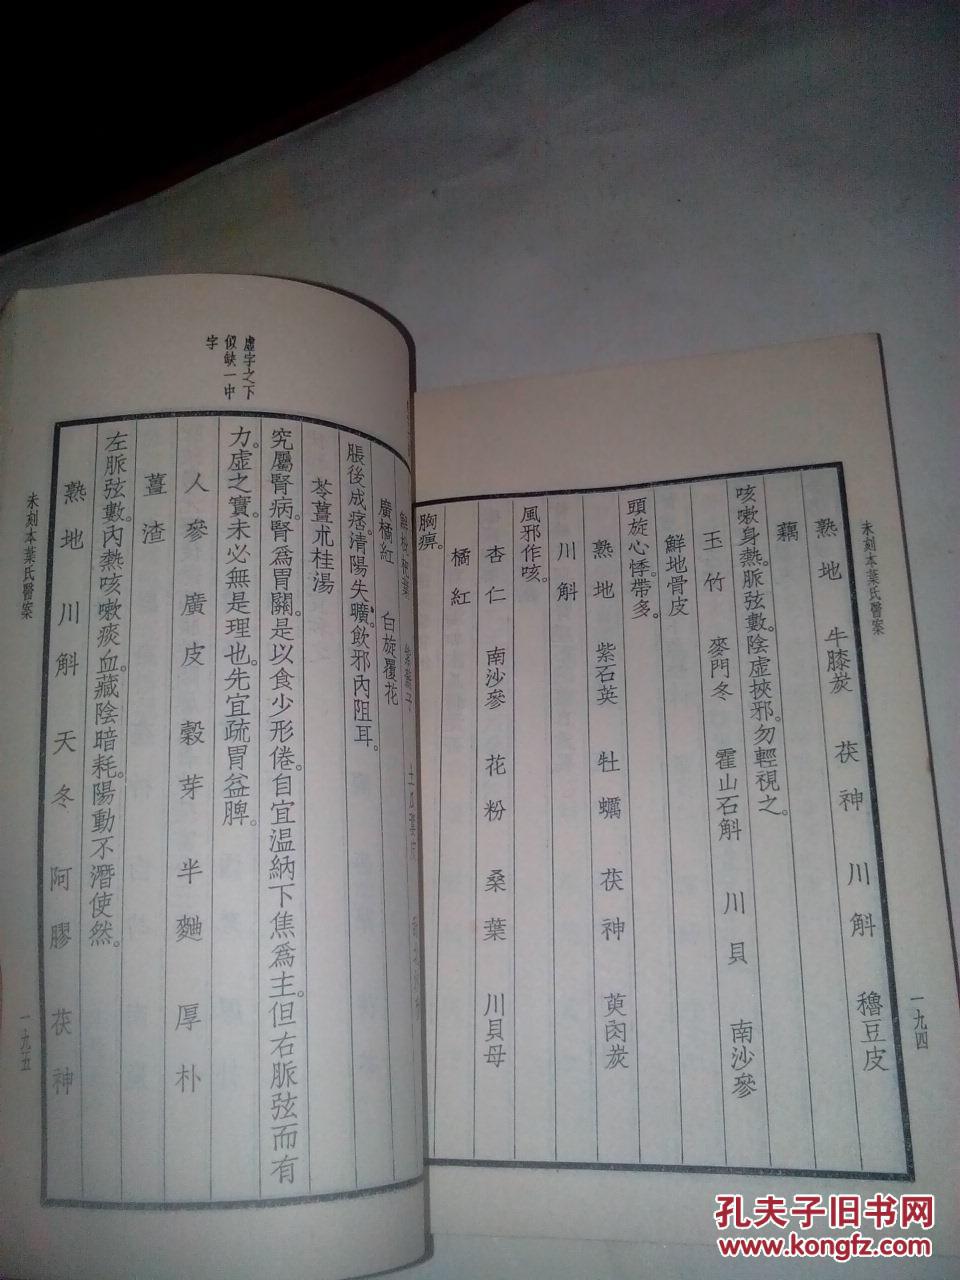 未刻本葉氏醫案
一九四
熟地 牛膝炭 茯神 川斛 穭豆皮
藕
咳嗽身熱。脈弦數。陰虛挾邪。勿輕視之。
玉竹 麥門冬 霍山石斛 川貝 南沙參
鮮地骨皮
頭旋心悸。帶多。
熟地 紫石英 牡蠣 茯神 萸肉炭
川斛
風邪作咳。
杏仁 南沙參 花粉 桑葉 川貝母
橘紅
胸痹。
廣橘紅 白旋覆花
脹後成痞。清陽失曠。飲邪內阻耳。
苓薑朮桂湯
究屬腎病。腎爲胃關。是以食少形倦。自宜溫納下焦爲主。但右脈弦而有
力。虛之實。未必無是理也。先宜疏胃益脾。
人參 廣皮 穀芽 半麯 厚朴
薑渣
左脈弦數。內熱咳嗽痰血。藏陰暗耗。陽動不潛使然。
熟地 川斛 天冬 阿膠 茯神
虛字之下
似缺一中
字
未刻本葉氏醫案
一九五
孔夫子旧书网
www.kongfz.com